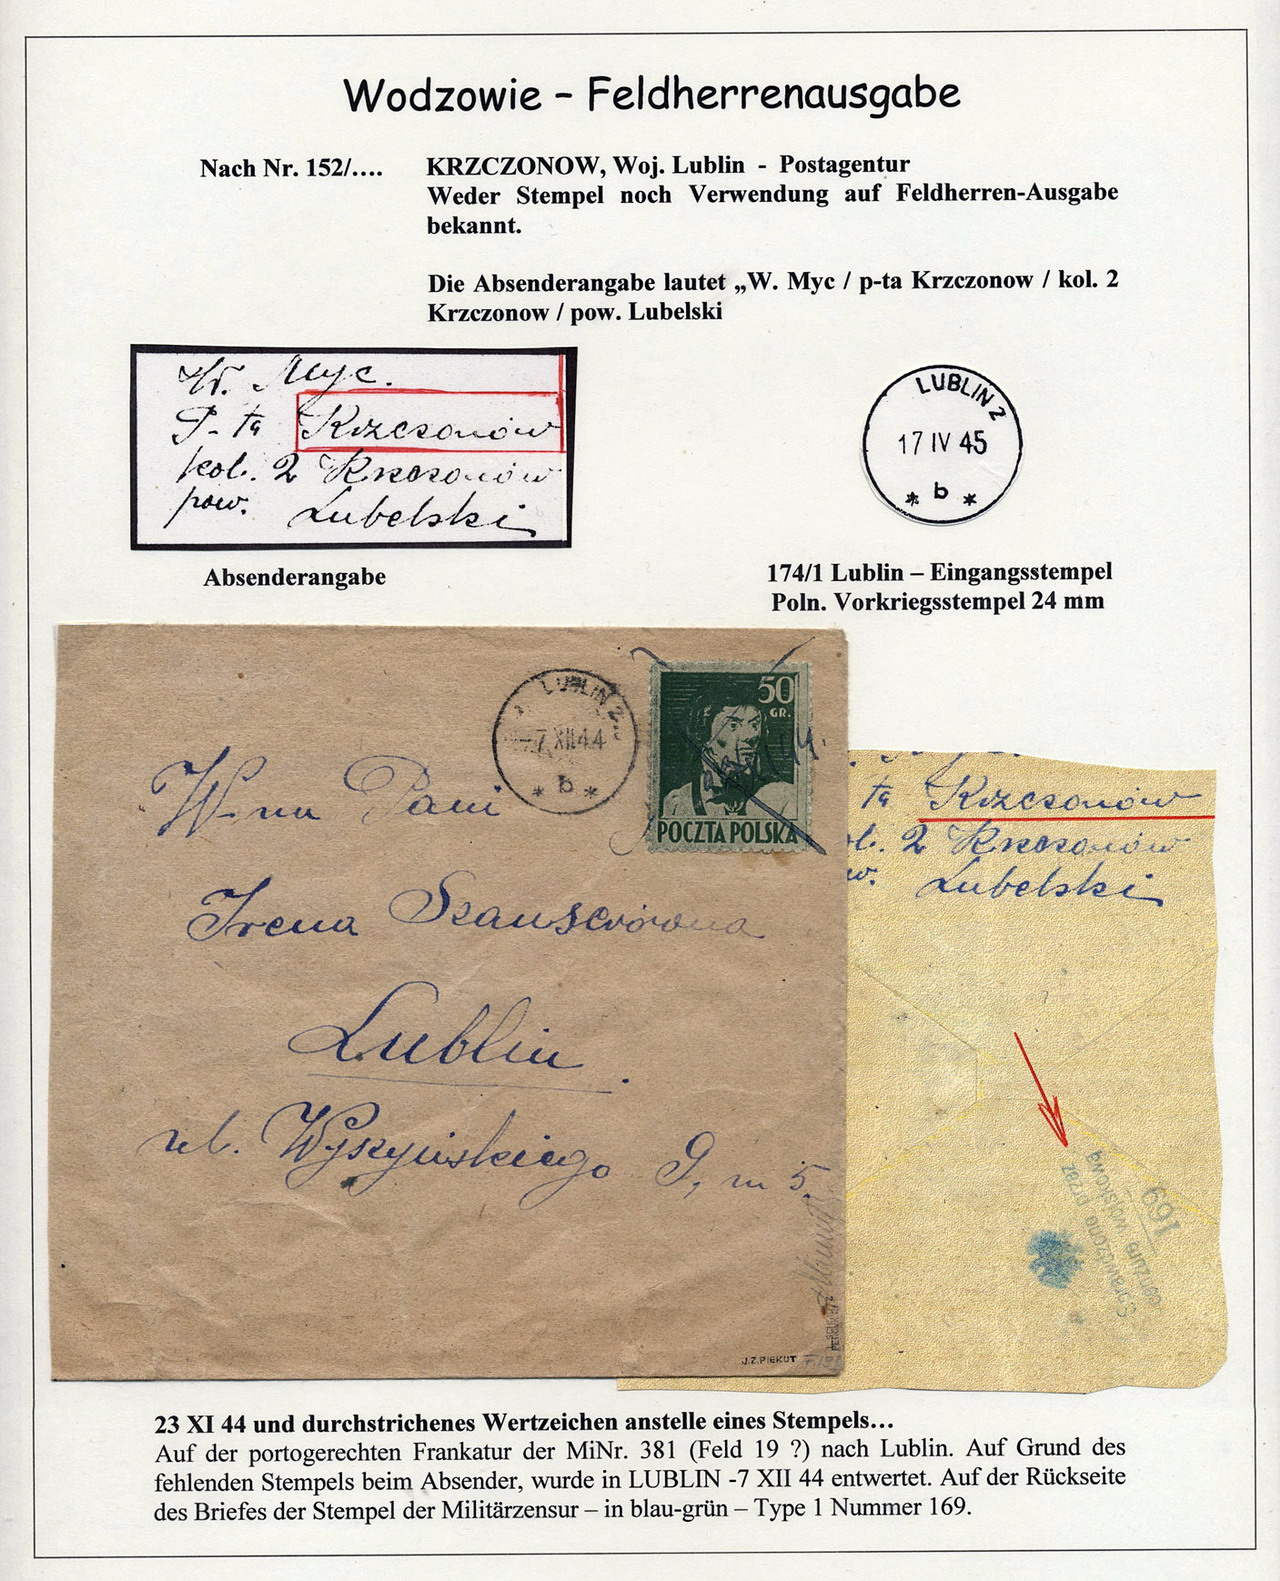 Wodzowie – Feldherrenausgabe
Nach Nr. 152/....
KRZCZONOW, Woj. Lublin - Postagentur
Weder Stempel noch Verwendung auf Feldherren-Ausgabe
bekannt.
Die Absenderangabe lautet „W. Myc / p-ta Krzczonow / kol. 2
Krzczonow / pow. Lubelski
W. Myc.
P-ta Krzczonów
kol. 2 Krzczonów
pow. Lubelski
Absenderangabe
LUBLIN 2
17 IV 45
* b *
174/1 Lublin – Eingangsstempel
Poln. Vorkriegsstempel 24 mm
LUBLIN 2
-7 XII 44
* b *
50
GR.
POCZTA POLSKA
W-na Pani
Irena
Lublin.
ul. Wyszyńskiego 9, m 5.
J.Z. PIEKUT
ta Krzczonów
ol. 2 Krzczonów
w. Lubelski
Sprawdzone przez
cenzurę wojskową
169
23 XI 44 und durchstrichenes Wertzeichen anstelle eines Stempels…
Auf der portogerechten Frankatur der MiNr. 381 (Feld 19 ?) nach Lublin. Auf Grund des
fehlenden Stempels beim Absender, wurde in LUBLIN -7 XII 44 entwertet. Auf der Rückseite
des Briefes der Stempel der Militärzensur – in blau-grün – Type 1 Nummer 169.